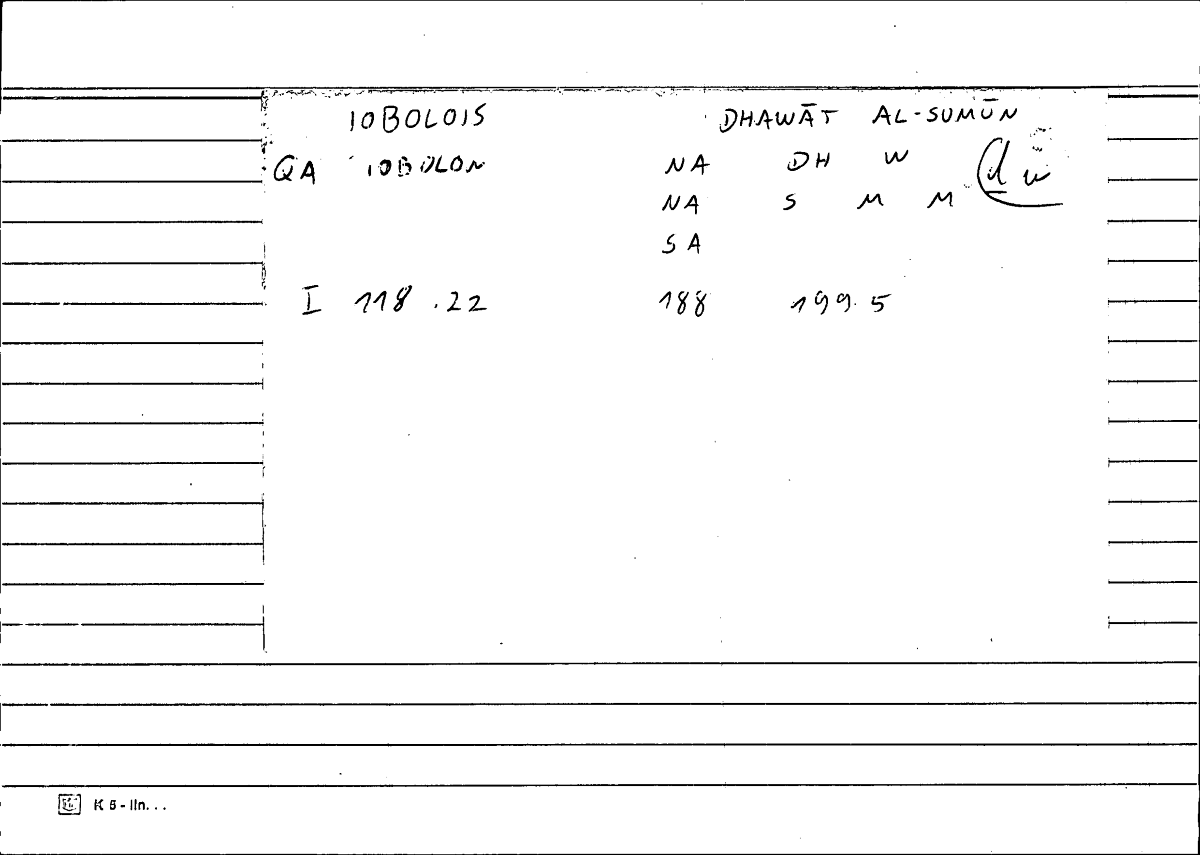 IOBOLOIS DHAWĀT AL-SUMŪN
QA IOBOLON NA DH W ḏ w
NA S M M
SA
I 118.22 188 199.5
K 5 - lln...